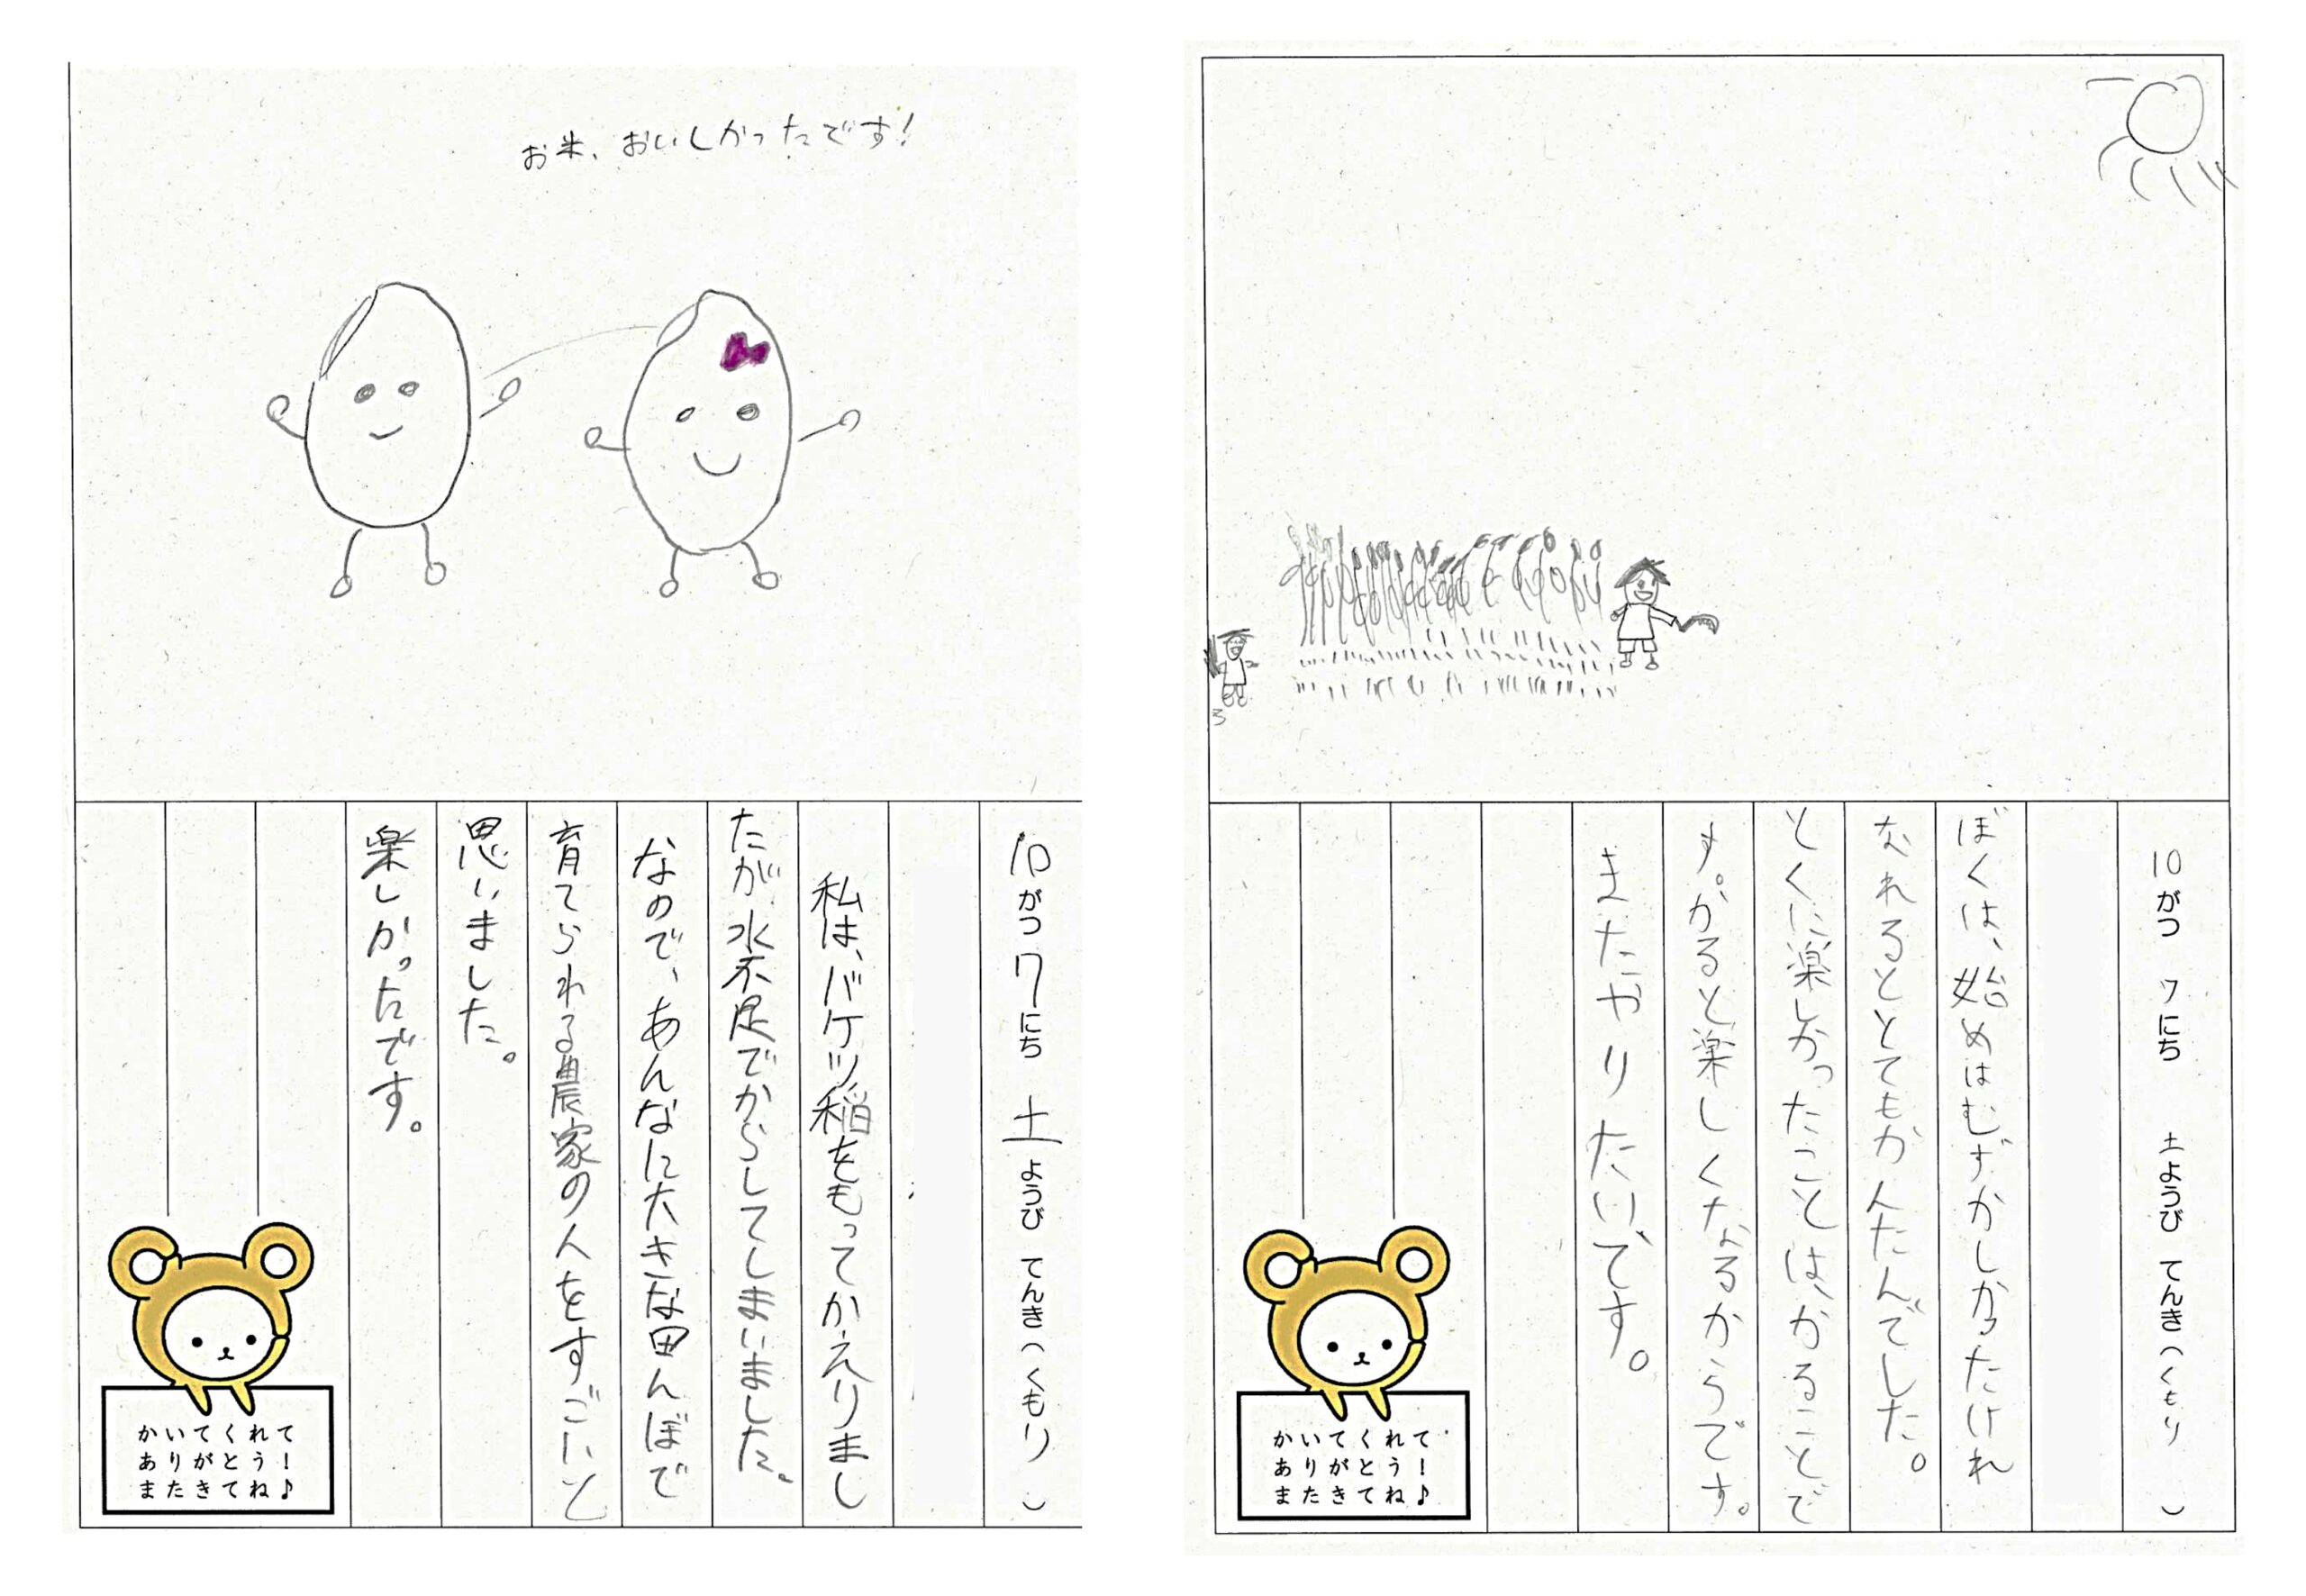 お米、おいしかったです!
10がつ7にち 土ようび てんき(くもり)
私は、バケツ稲をもってかえりまし
たが水不足でからしてしまいました。
なので、あんなに大きな田んぼで
育てられる農家の人をすごいと
思いました。
楽しかったです。
かいてくれて
ありがとう!
またきてね♪
10がつ7にち 土ようび てんき(くもり)
ぼくは、始めはむずかしかったけれ
なれるととてもかんたんでした。
とくに楽しかったことは、かることで
す。かると楽しくなるからです。
またやりたいです。
かいてくれて
ありがとう!
またきてね♪